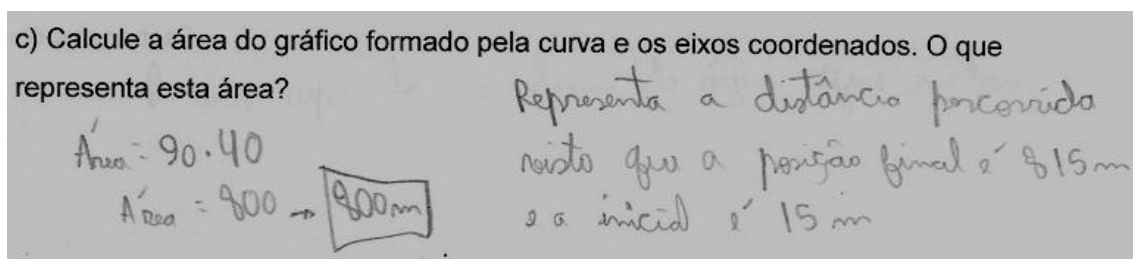 c) Calcule a área do gráfico formado pela curva e os eixos coordenados. O que
representa esta área?
Área = 20.40
Área = 800 → 800m
Representa a distância percorrida
visto que a posição final é 815m
e a inicial é 15 m